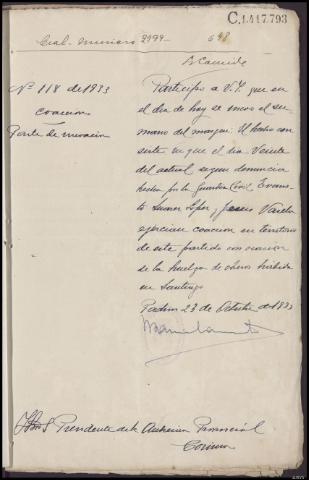 C.1.417.793
Nº 118 de 1933
coaccion
Parte de incoación
Participo a V.I. que en
el dia de hoy se incoo el su-
mario del margen. El hecho con-
siste en que el dia veinte
del actual segun denuncia
hecha por la Guardia Civil Evaris-
to Lopez y Jesus Varela
ejercian coaccion en territorio
de este partido con ocasion
de la huelga de obreros habida
en Santiago
Padron 23 de Octubre de 1933
Presidente de la Audiencia Provincial
Coruña